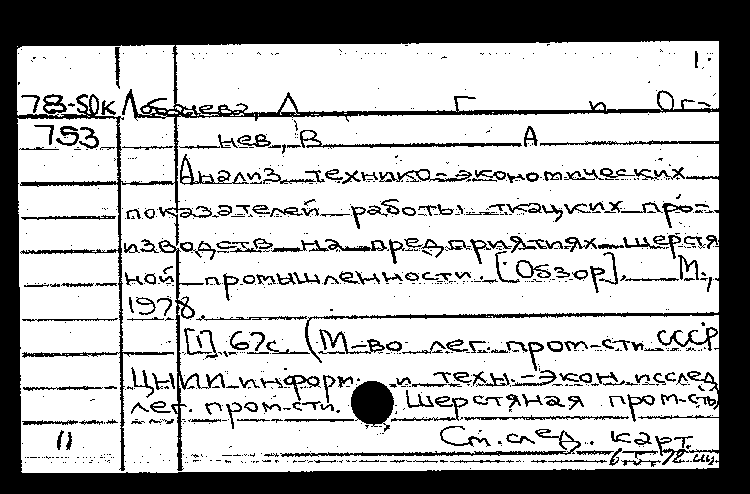 1.
78-50к Лобачева, Л Г и Ог-
793 нев, В А
Анализ технико-экономических
показателей работы ткацких про-
изводств на предприятиях шерстя
ной промышленности. [Обзор]. М.,
1978.
[1], 67с. (М-во лег. пром-сти СССР
ЦНИИ информ. и техн.-экон. исслед
лег. пром-сти. Шерстяная пром-сть)
11 См. след. карт.
6.5.78